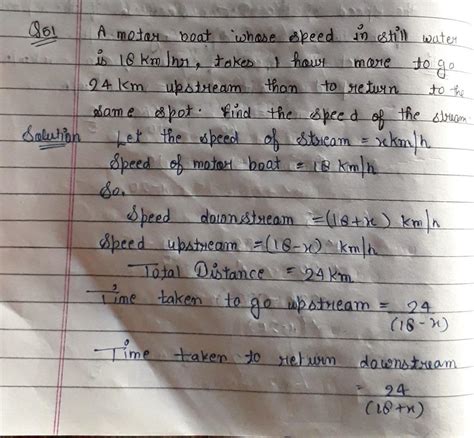 Q51 A motor boat whose speed in still water
is 18 km/hr, takes 1 hour more to go
24 km upstream than to return to the
same spot. Find the speed of the stream
Solution Let the speed of stream = x km/h
Speed of motor boat = 18 km/h
So,
Speed downstream = (18+x) km/h
Speed upstream = (18-x) km/h
Total Distance = 24 km
Time taken to go upstream = 24
(18-x)
Time taken to return downstream
= 24
(18+x)